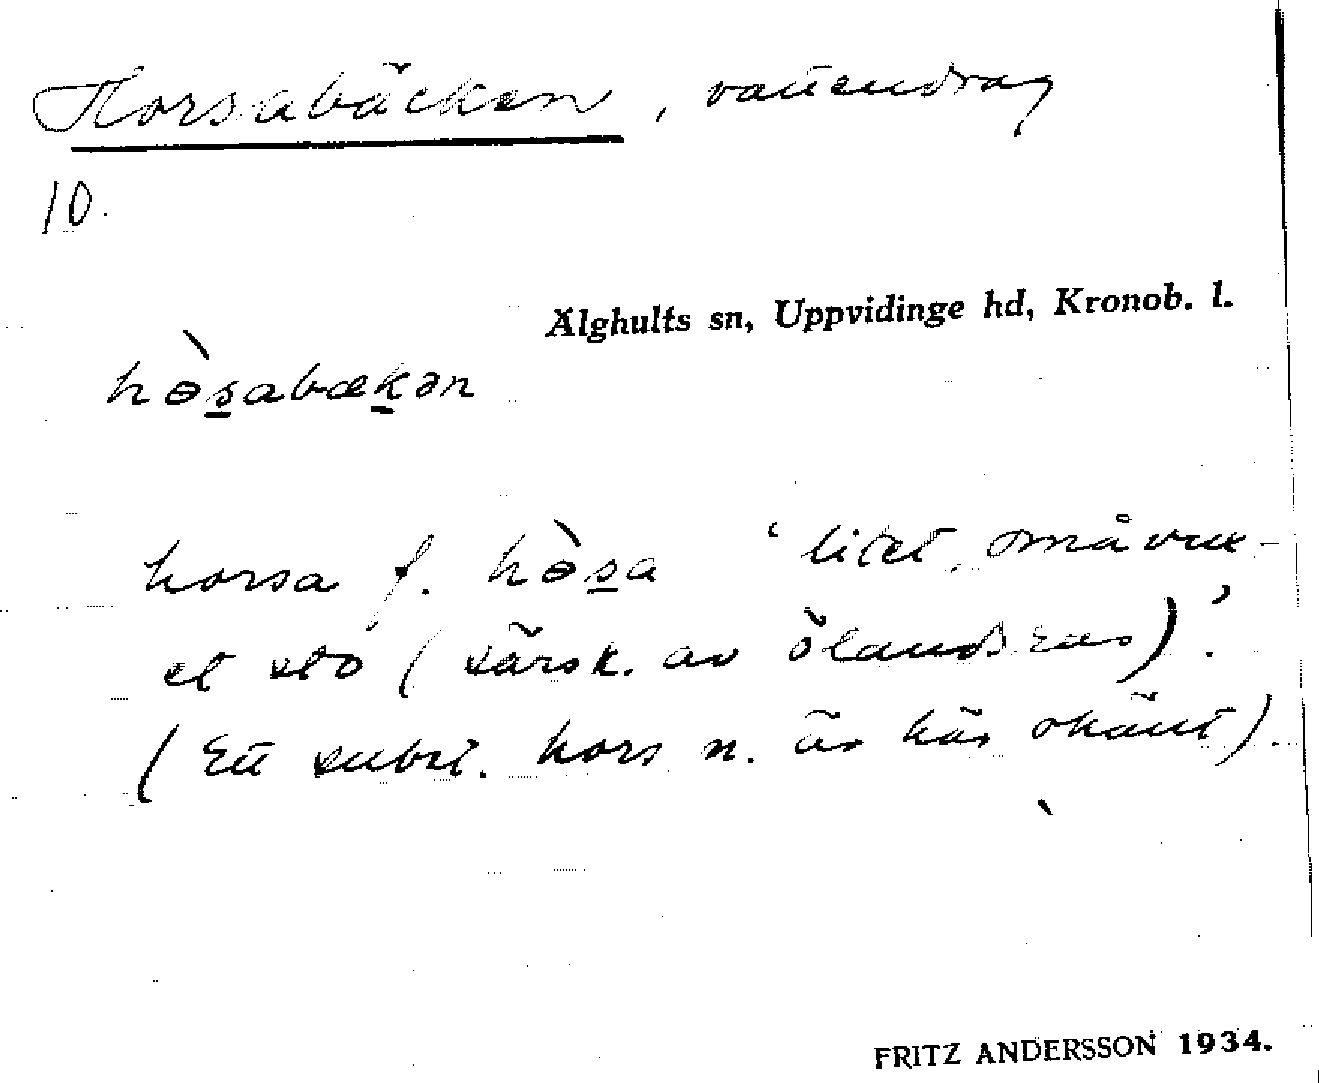 Horsabäcken, vattendrag
10.
Älghults sn, Uppvidinge hd, Kronob. l.
hɵ̀s̠abæk̠ən
horsa f. hɵ̀s̠a ‘litet, småvux-
et sto (särsk. av ölandsras)’.
(Ett subst. hors n. är här okänt).
FRITZ ANDERSSON 1934.